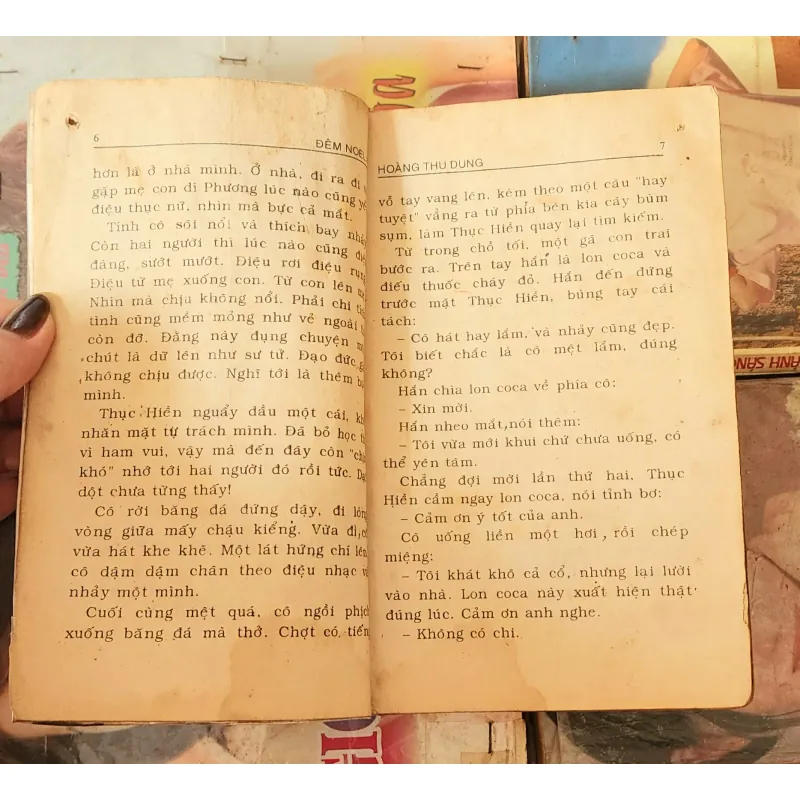 6
ĐÊM NOEL
hơn là ở nhà mình. Ở nhà, đi ra đi
gặp mẹ con dì Phương lúc nào cũng
điệu thục nữ, nhìn mà bực cả mắt.
Tính cô sôi nổi và thích bay
Còn hai người thì lúc nào cũng
đàng, sướt mướt. Điệu rơi điệu
Điệu từ mẹ xuống con. Từ con lên
Nhìn mà chịu không nổi. Phải chi
tình cũng mềm mỏng như vẻ ngoài
còn đỡ. Đằng này đụng chuyện
chút là dữ lên như sư tử. Đạo đức
không chịu được. Nghĩ tới là thêm
mình.
Thục Hiền nguẩy đầu một cái,
nhăn mặt tự trách mình. Đã bỏ học
vì ham vui, vậy mà đến đây còn
khó" nhớ tới hai người đó rồi tức.
dột chưa từng thấy!
Cô rời băng đá đứng dậy, đi
vòng giữa mấy chậu kiểng. Vừa đi,
vừa hát khe khẽ. Một lát hứng chí lên,
cô dậm dậm chân theo điệu nhạc
nhảy một mình.
Cuối cùng mệt quá, cô ngồi phịch
xuống băng đá mà thở. Chợt có, tiếng
HOÀNG THU DUNG
7
vỗ tay vang lên, kém theo một câu "hay
tuyệt" vẳng ra từ phía bên kia cây bùm
sụm, làm Thục Hiền quay lại tìm kiếm.
Từ trong chỗ tối, một gã con trai
bước ra. Trên tay hắn là lon coca và
điếu thuốc cháy đỏ. Hắn đến đứng
trước mặt Thục Hiền, búng tay cái
tách:
– Cô hát hay lắm, và nhảy cũng đẹp.
Tôi biết chắc là cô mệt lắm, đúng
không?
Hắn chìa lon coca về phía cô:
– Xin mời.
Hắn nheo mắt, nói thêm:
– Tôi vừa mới khui chứ chưa uống, cô
thể yên tâm.
Chẳng đợi mời lần thứ hai, Thục
Hiền cầm ngay lon coca, nói tỉnh bơ:
– Cảm ơn ý tốt của anh.
Cô uống liền một hơi, rồi chép
miệng:
– Tôi khát khô cả cổ, nhưng lại lười
vào nhà. Lon coca này xuất hiện thật
đúng lúc. Cảm ơn anh nghe.
– Không có chi.